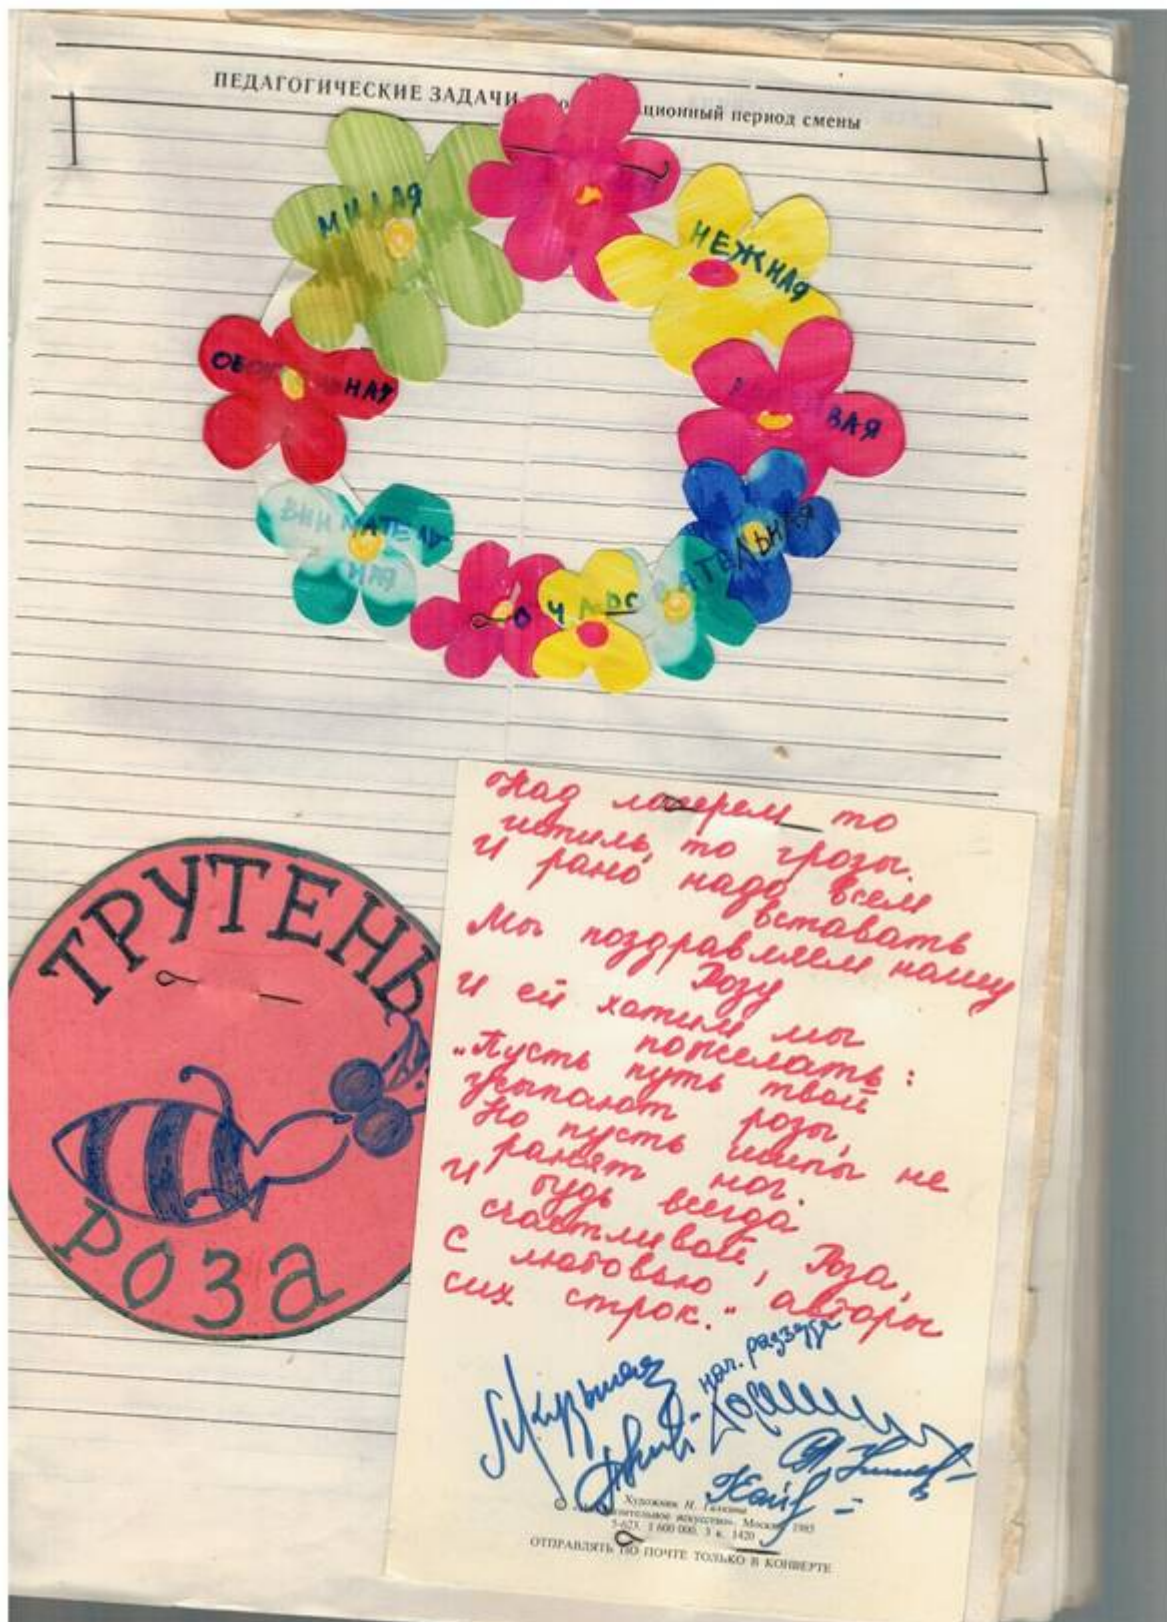 ПЕДАГОГИЧЕСКИЕ ЗАДАЧИ ционный период смены
МИЛАЯ
НЕЖНАЯ
ВАЯ
ВНИМАТЕЛЬ
НАЯ
ОЧАРОВАТЕЛЬНАЯ
ТРУТЕНЬ
РОЗА
Над лагерем то
штиль, то грозы.
И рано надо всем
вставать
Мы поздравляем нашу
Розу
И ей хотим мы
пожелать:
„Пусть путь твой
усыпают розы,
Но пусть шипы не
ранят ног.
И будь всегда
счастливой, Роза,
С любовью авторы
сих строк."
нач.
Художник Н.
Москва 1985
5-623. 1 600 000. 3 к. 1420
ОТПРАВЛЯТЬ ПО ПОЧТЕ ТОЛЬКО В КОНВЕРТЕ